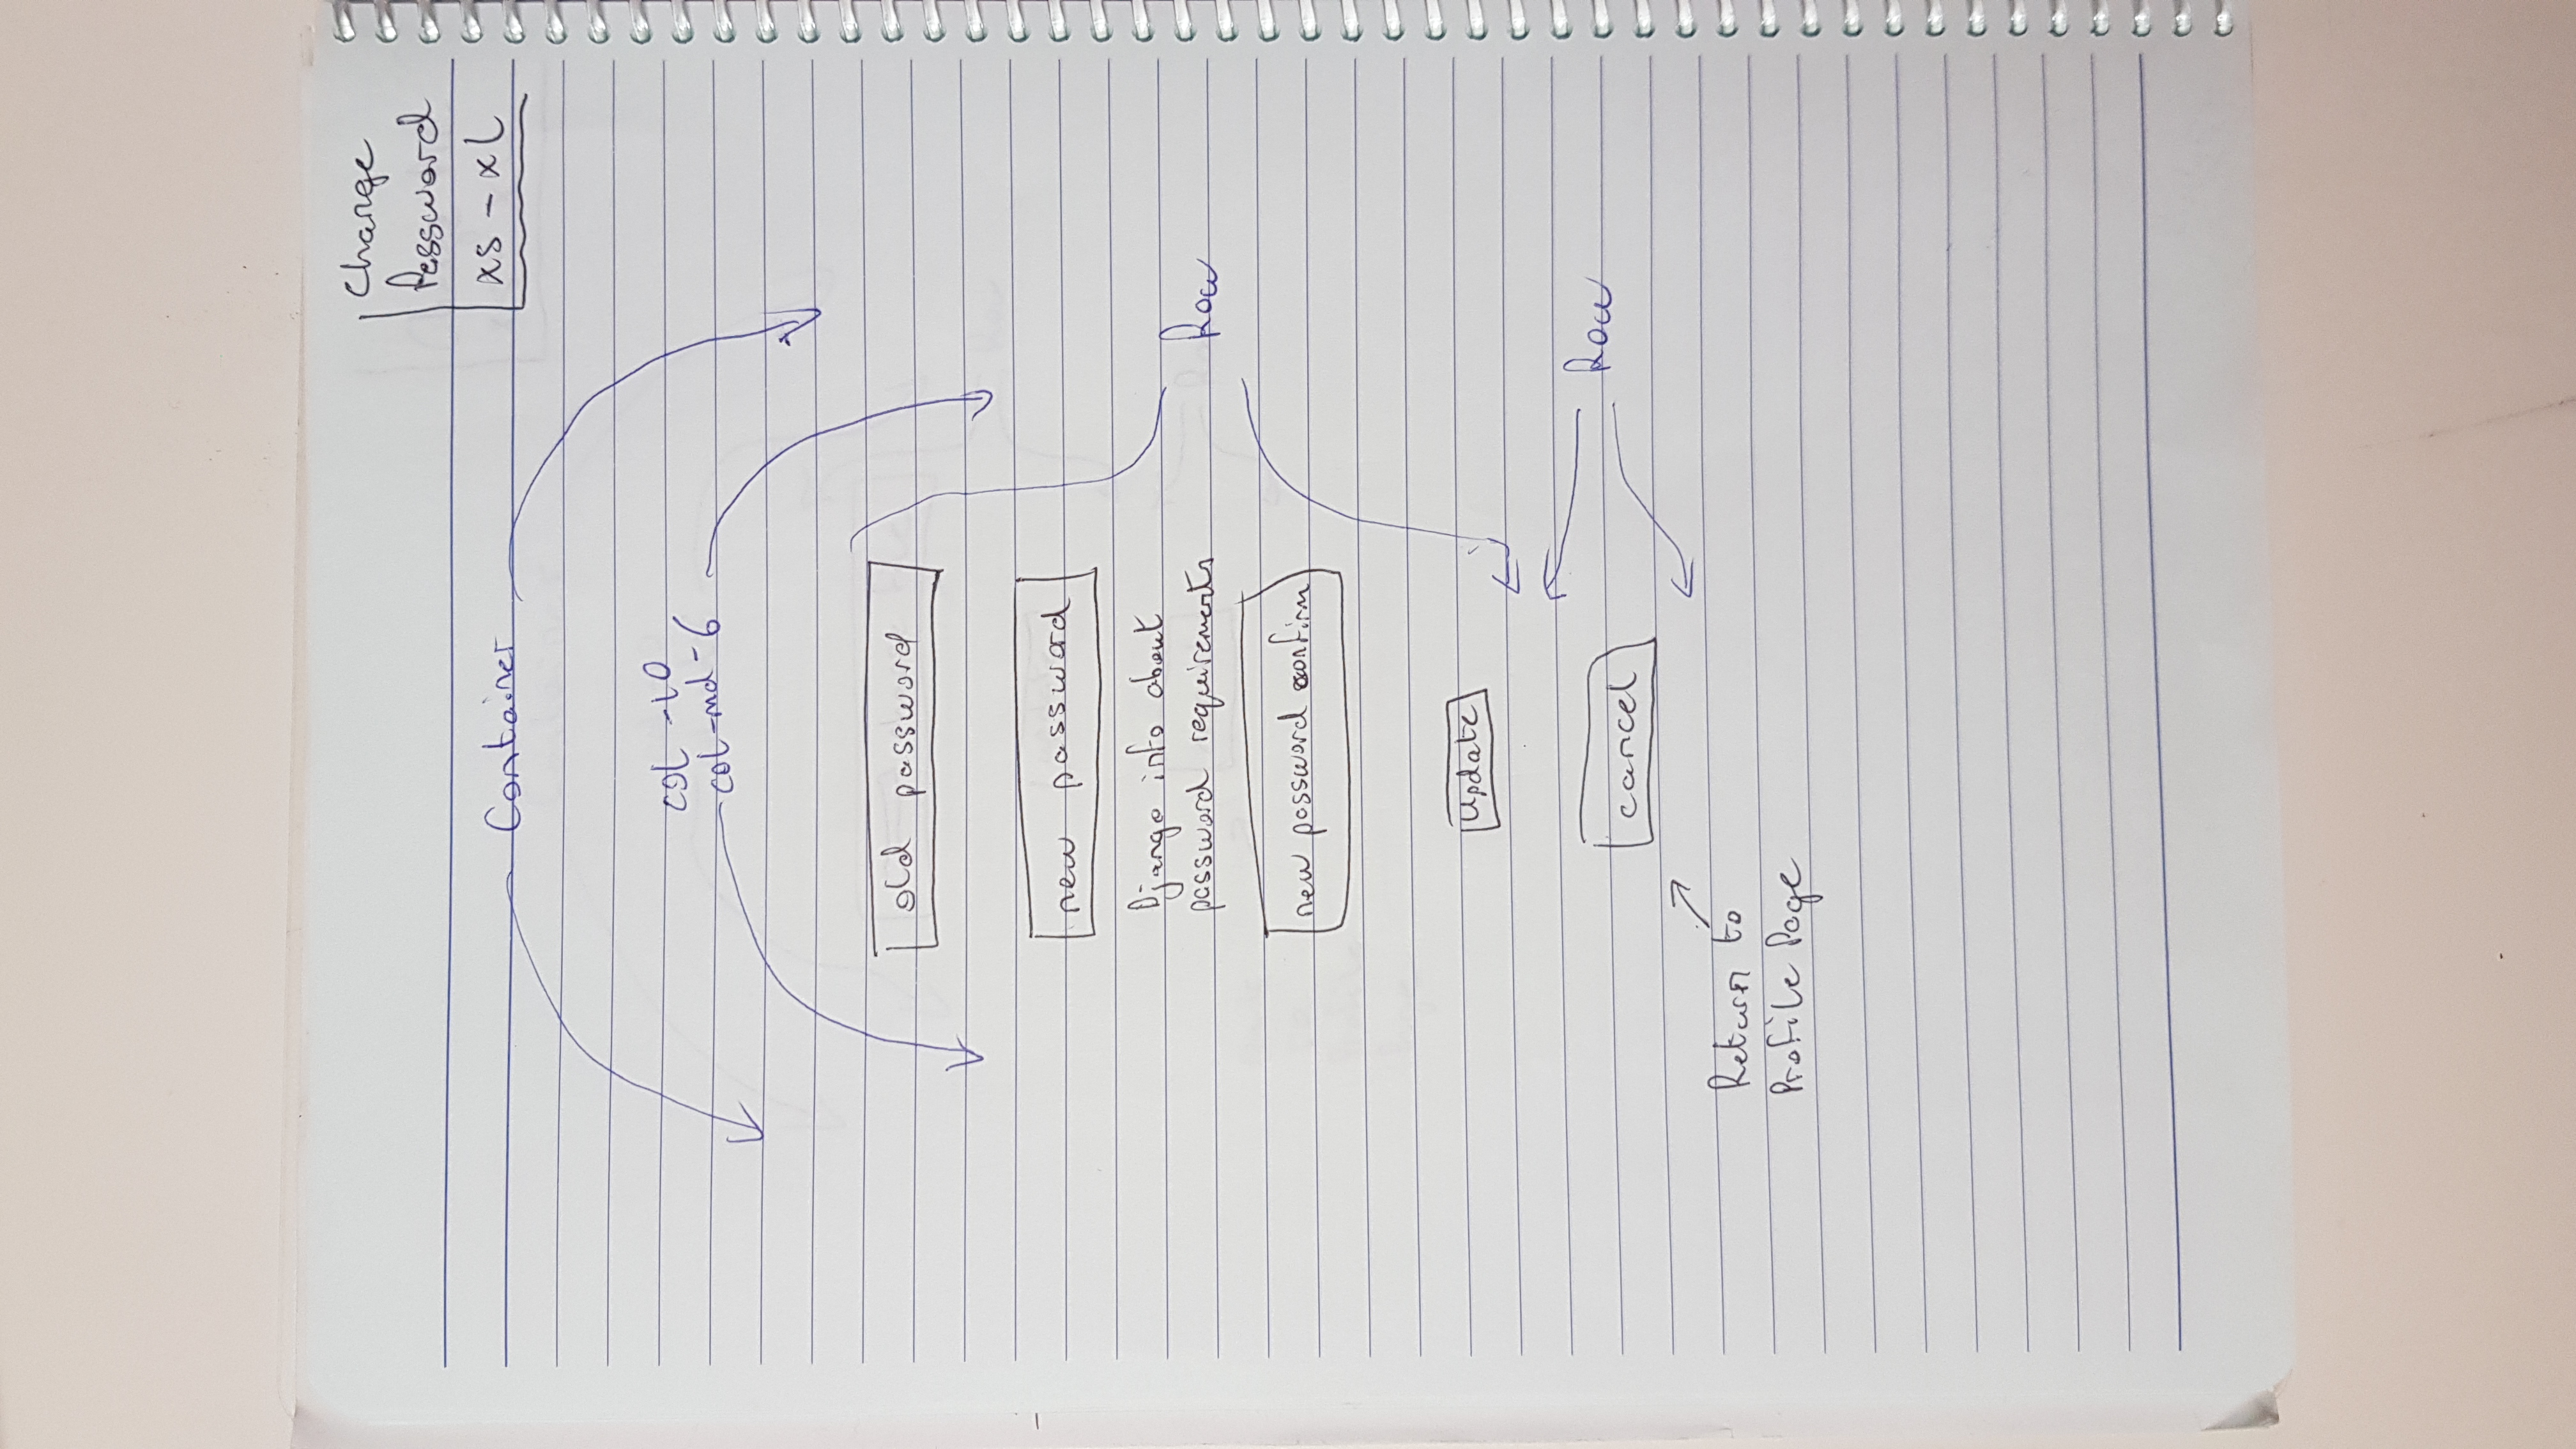 Change
Password
xs - xl
Container
col -10
col-md-6
old password
new password
Django info about
password requirements
Row
new password confirm
Update
Row
cancel
Return to
Profile Page